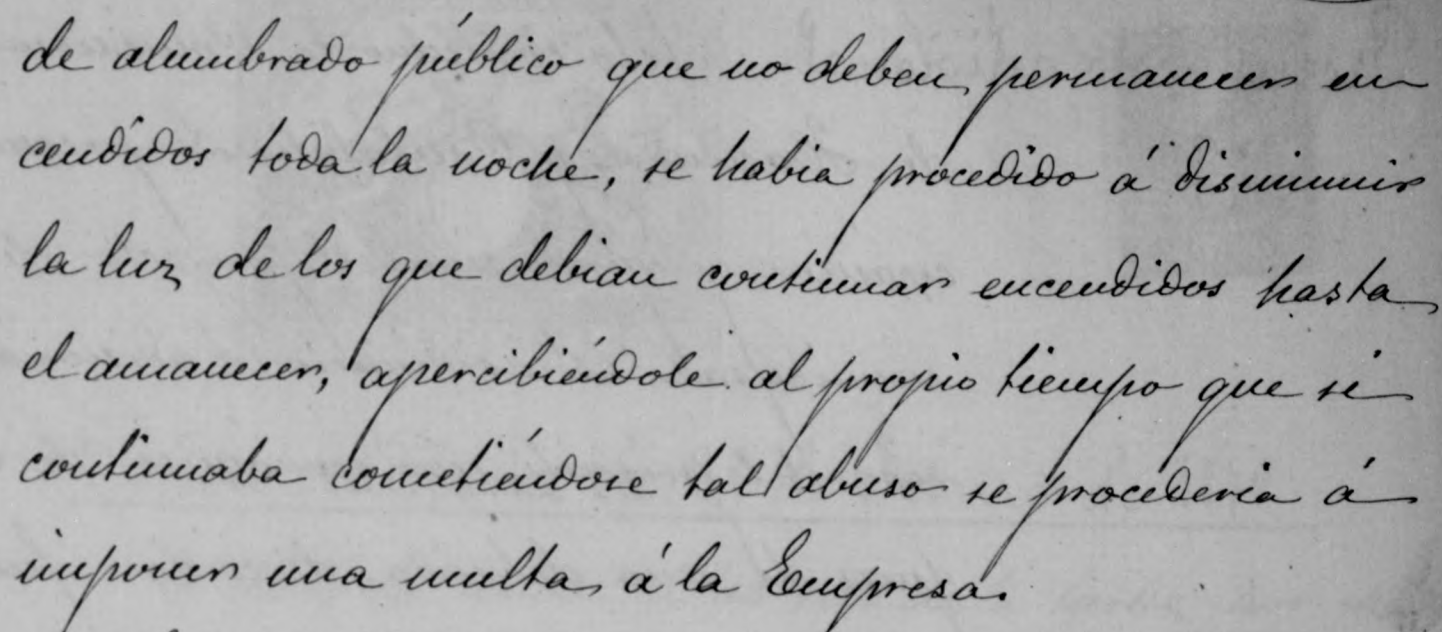 de alumbrado público que no deben permanecer en
cendidos toda la noche, se habia procedido á disminuir
la luz de los que debian continuar encendidos hasta
el amanecer, apercibiéndole al propio tiempo que si
continuaba cometiéndose tal abuso se procederia á
imponer una multa á la Empresa.